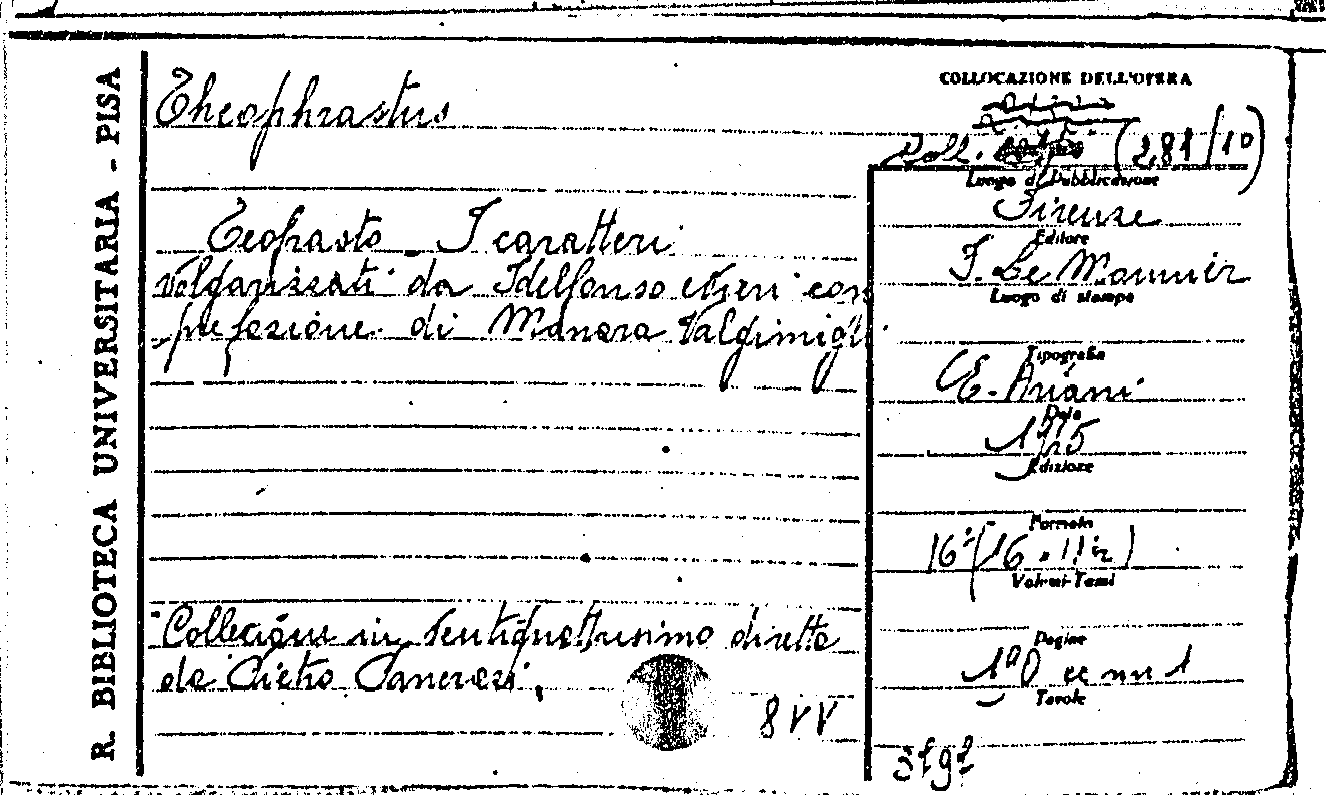 R. BIBLIOTECA UNIVERSITARIA - PISA
Theophrastus
Teofrasto - I caratteri
volgarizzati da Idelfonso Nieri con
prefazione di Manara Valgimigli
Collezione in ventiquattresimo diretta
da Pietro Pancrazi.
8 VV
COLLOCAZIONE DELL'OPERA
Coll. (281/10)
Luogo di Pubblicazione
Firenze
Editore
F. Le Monnier
Luogo di stampa
Tipografia
E. Ariani
Data
Edizione
Formato
Volumi-Tomi
Pagine
Tavole